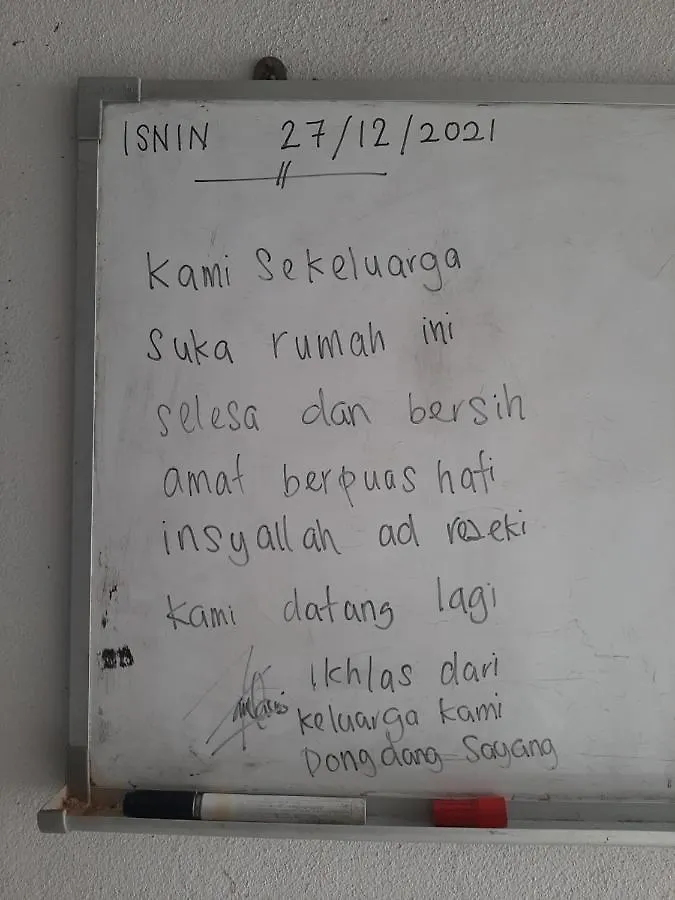 ISNIN 27/12/2021
Kami Sekeluarga
Suka rumah ini
selesa dan bersih
amat berpuas hati
insyallah ad rezeki
Kami datang lagi
Ikhlas dari
keluarga kami
Dongdang Sayang